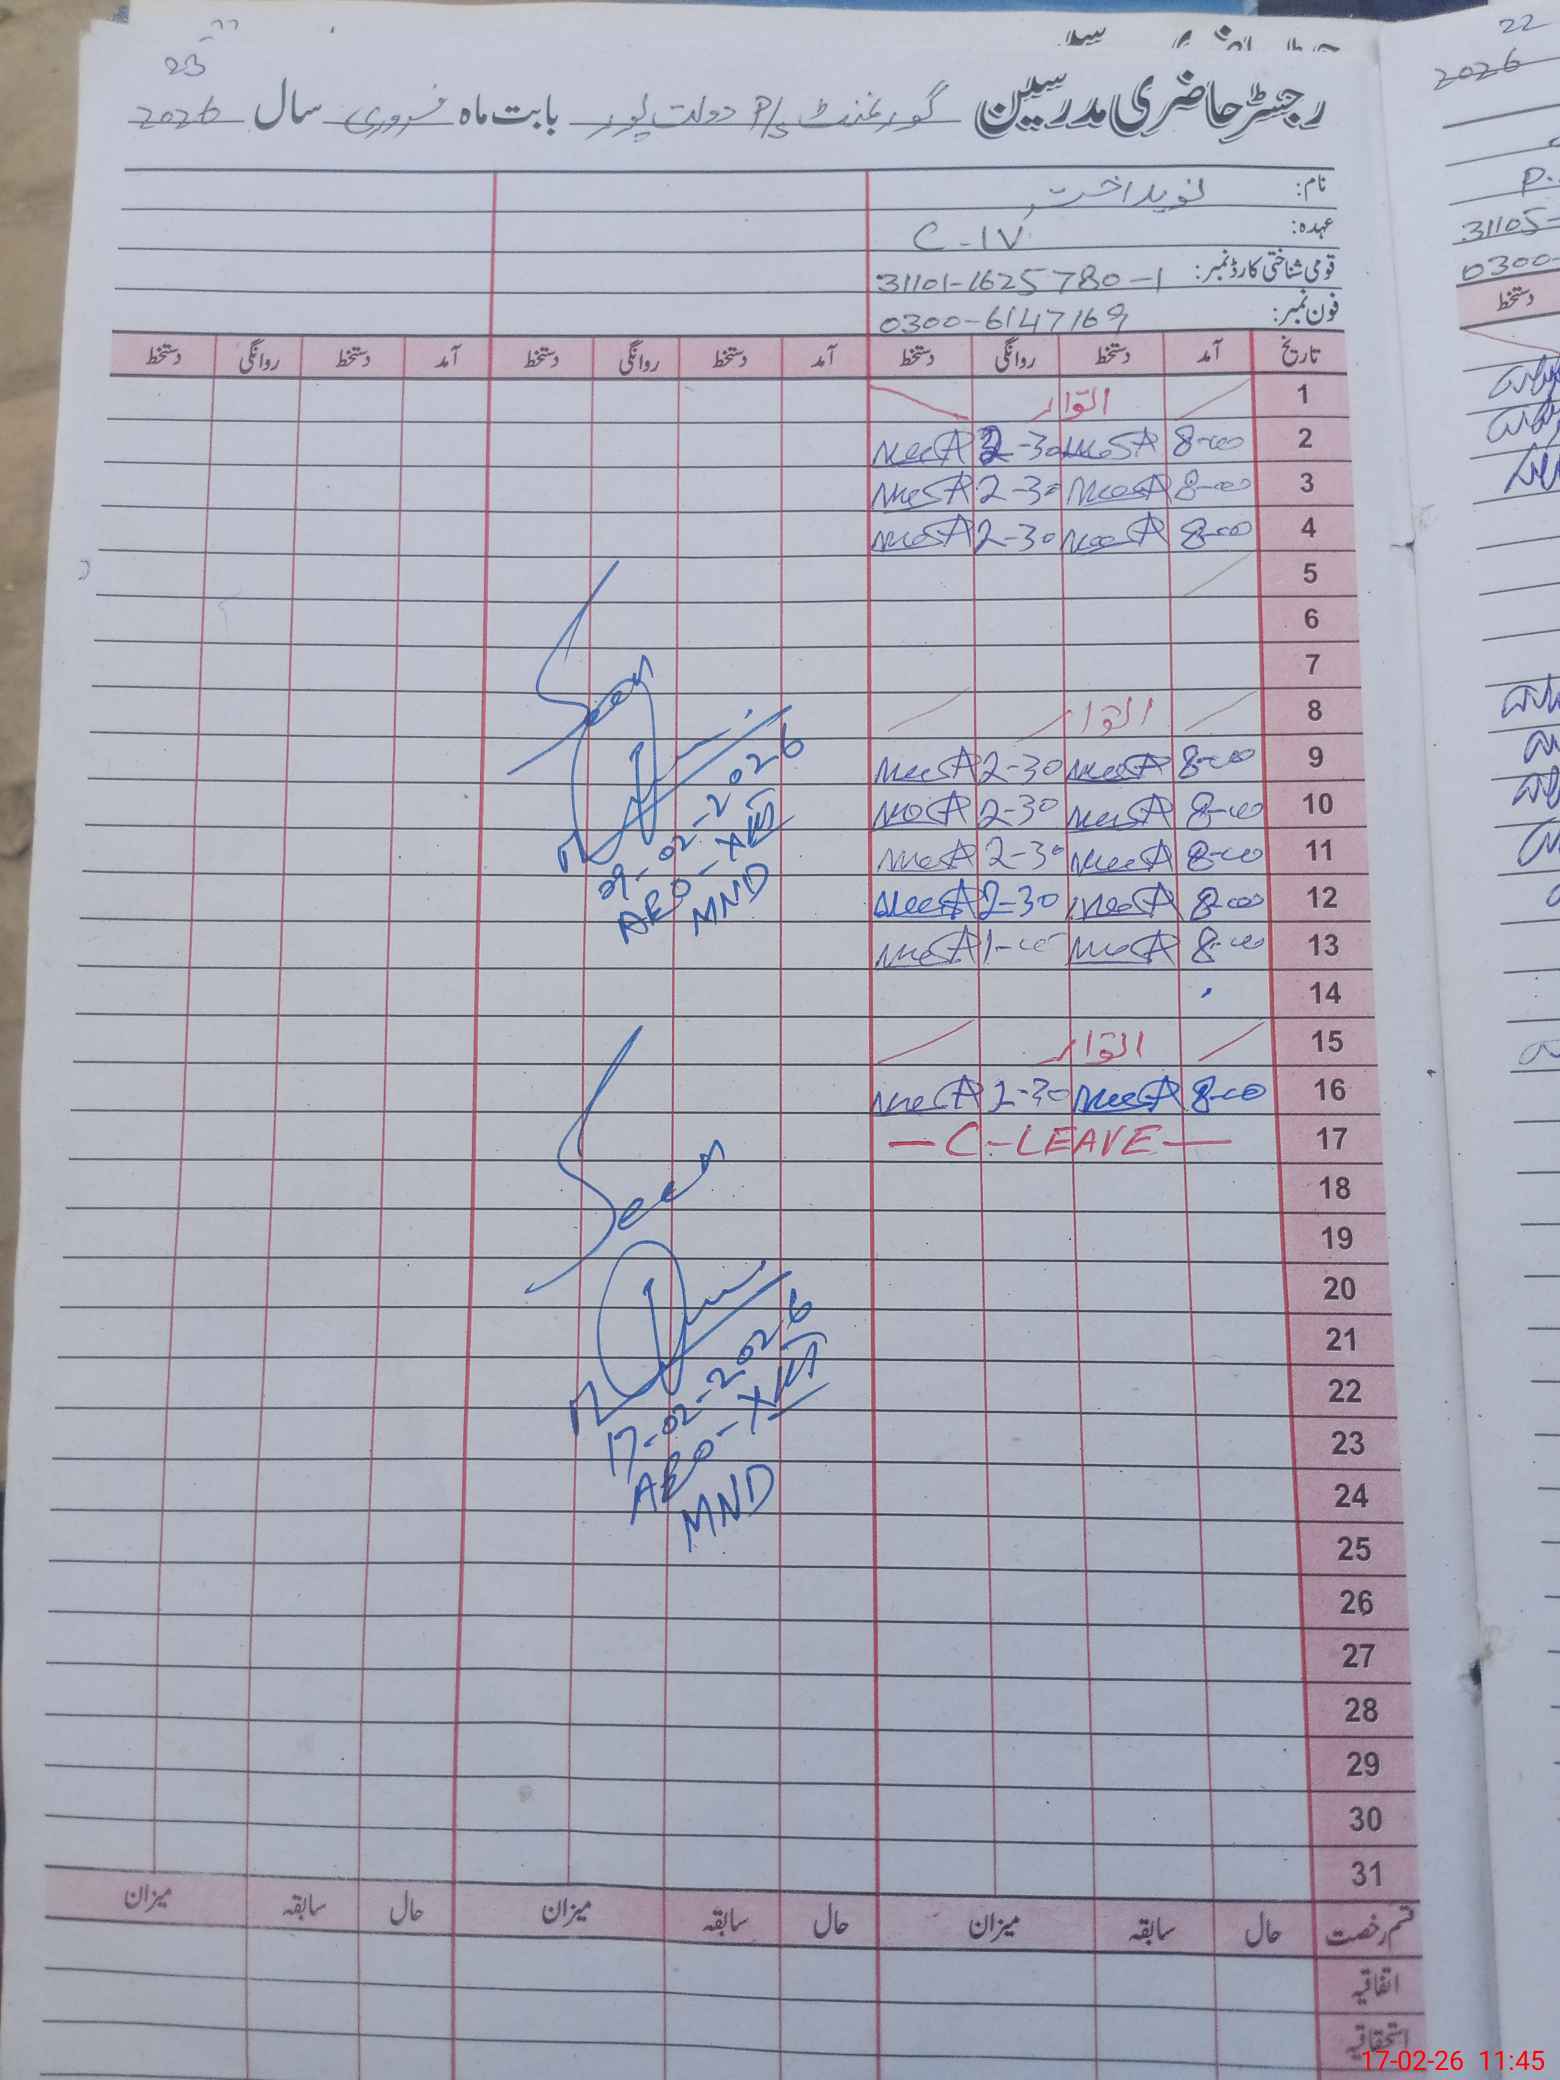 23
رجسٹر حاضری مدرسین گورنمنٹ P/S دولت پور بابت ماہ فروری سال 2026
نام: نوید اختر
عہدہ: C-IV
قومی شناختی کارڈ نمبر: 31101-1625780-1
فون نمبر: 0300-6147169
تاریخ آمد دستخط روانگی دستخط آمد دستخط روانگی دستخط آمد دستخط روانگی دستخط
1 اتوار
2 8-00 2-30
3 8-00 2-30
4 8-00 2-30
5
6
7
8 اتوار
9 8-00 2-30
10 8-00 2-30
11 8-00 2-30
12 8-00 2-30
13 8-00 1-00
14
15 اتوار
16 8-00 2-30
17 — C-LEAVE —
18
19
20
21
22
23
24
25
26
27
28
29
30
31
Seen
09-02-2026
AEO-
MND
Seen
17-02-2026
AEO-
MND
قسم رخصت حال سابقہ میزان حال سابقہ میزان حال سابقہ میزان
اتفاقیہ
استحقاقیہ
22
2026
31105-
0300-
دستخط
17-02-26 11:45